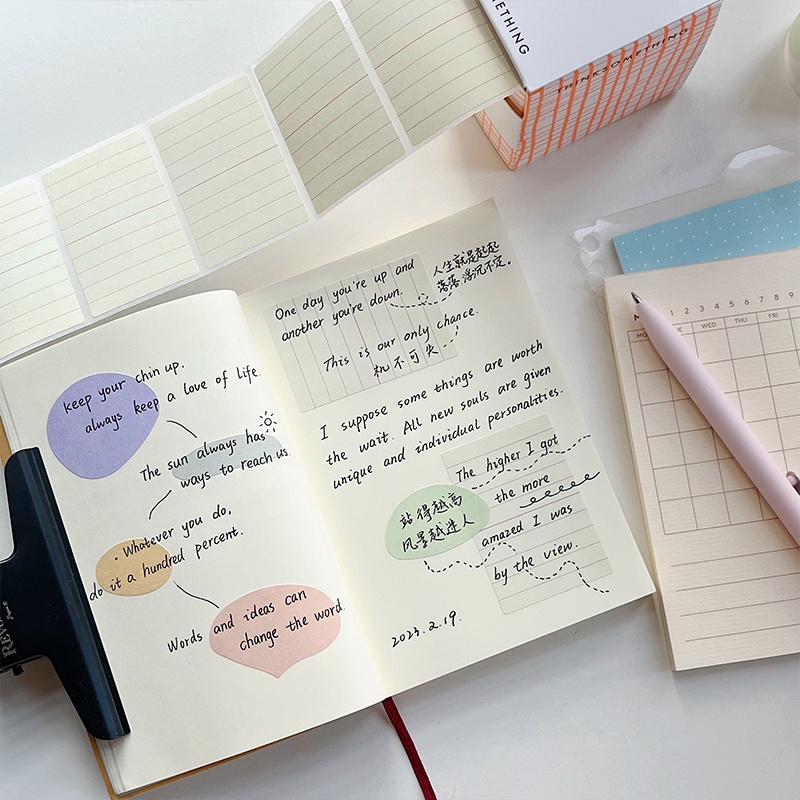 METHING
THINKSOMETHING
keep your chin up.
always keep a love of life.
The sun always has
ways to reach us.
Whatever you do,
do it a hundred percent.
Words and ideas can
change the word.
One day you're up and
another you're down.
人生就是起起
落落,浮沉不定。
This is our only chance.
机不可失
I suppose some things are worth
the wait. All new souls are given
unique and individual personalities.
The higher I got
the more
amazed I was
by the view.
站得越高
风景越迷人
2023.2.19.
1 2 3 4 5 6 7 8 9
WED THU FRI